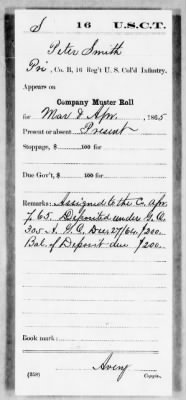 S 16 U.S.C.T.
Peter Smith
Pri, Co. B, 16 Reg't U. S. Col'd Infantry.
Appears on
Company Muster Roll
for Mar & Apr, 1865
Present or absent Present
Stoppage, $ 100 for
Due Gov't, $ 100 for
Remarks: Assigned to the Co. Apr.
7, 65. Deposited under G.O.
305 A. G. O. Dec 27/64 $200.
Bal. of Deposit due $200.
Book mark:
Avery
(358) Copyist.